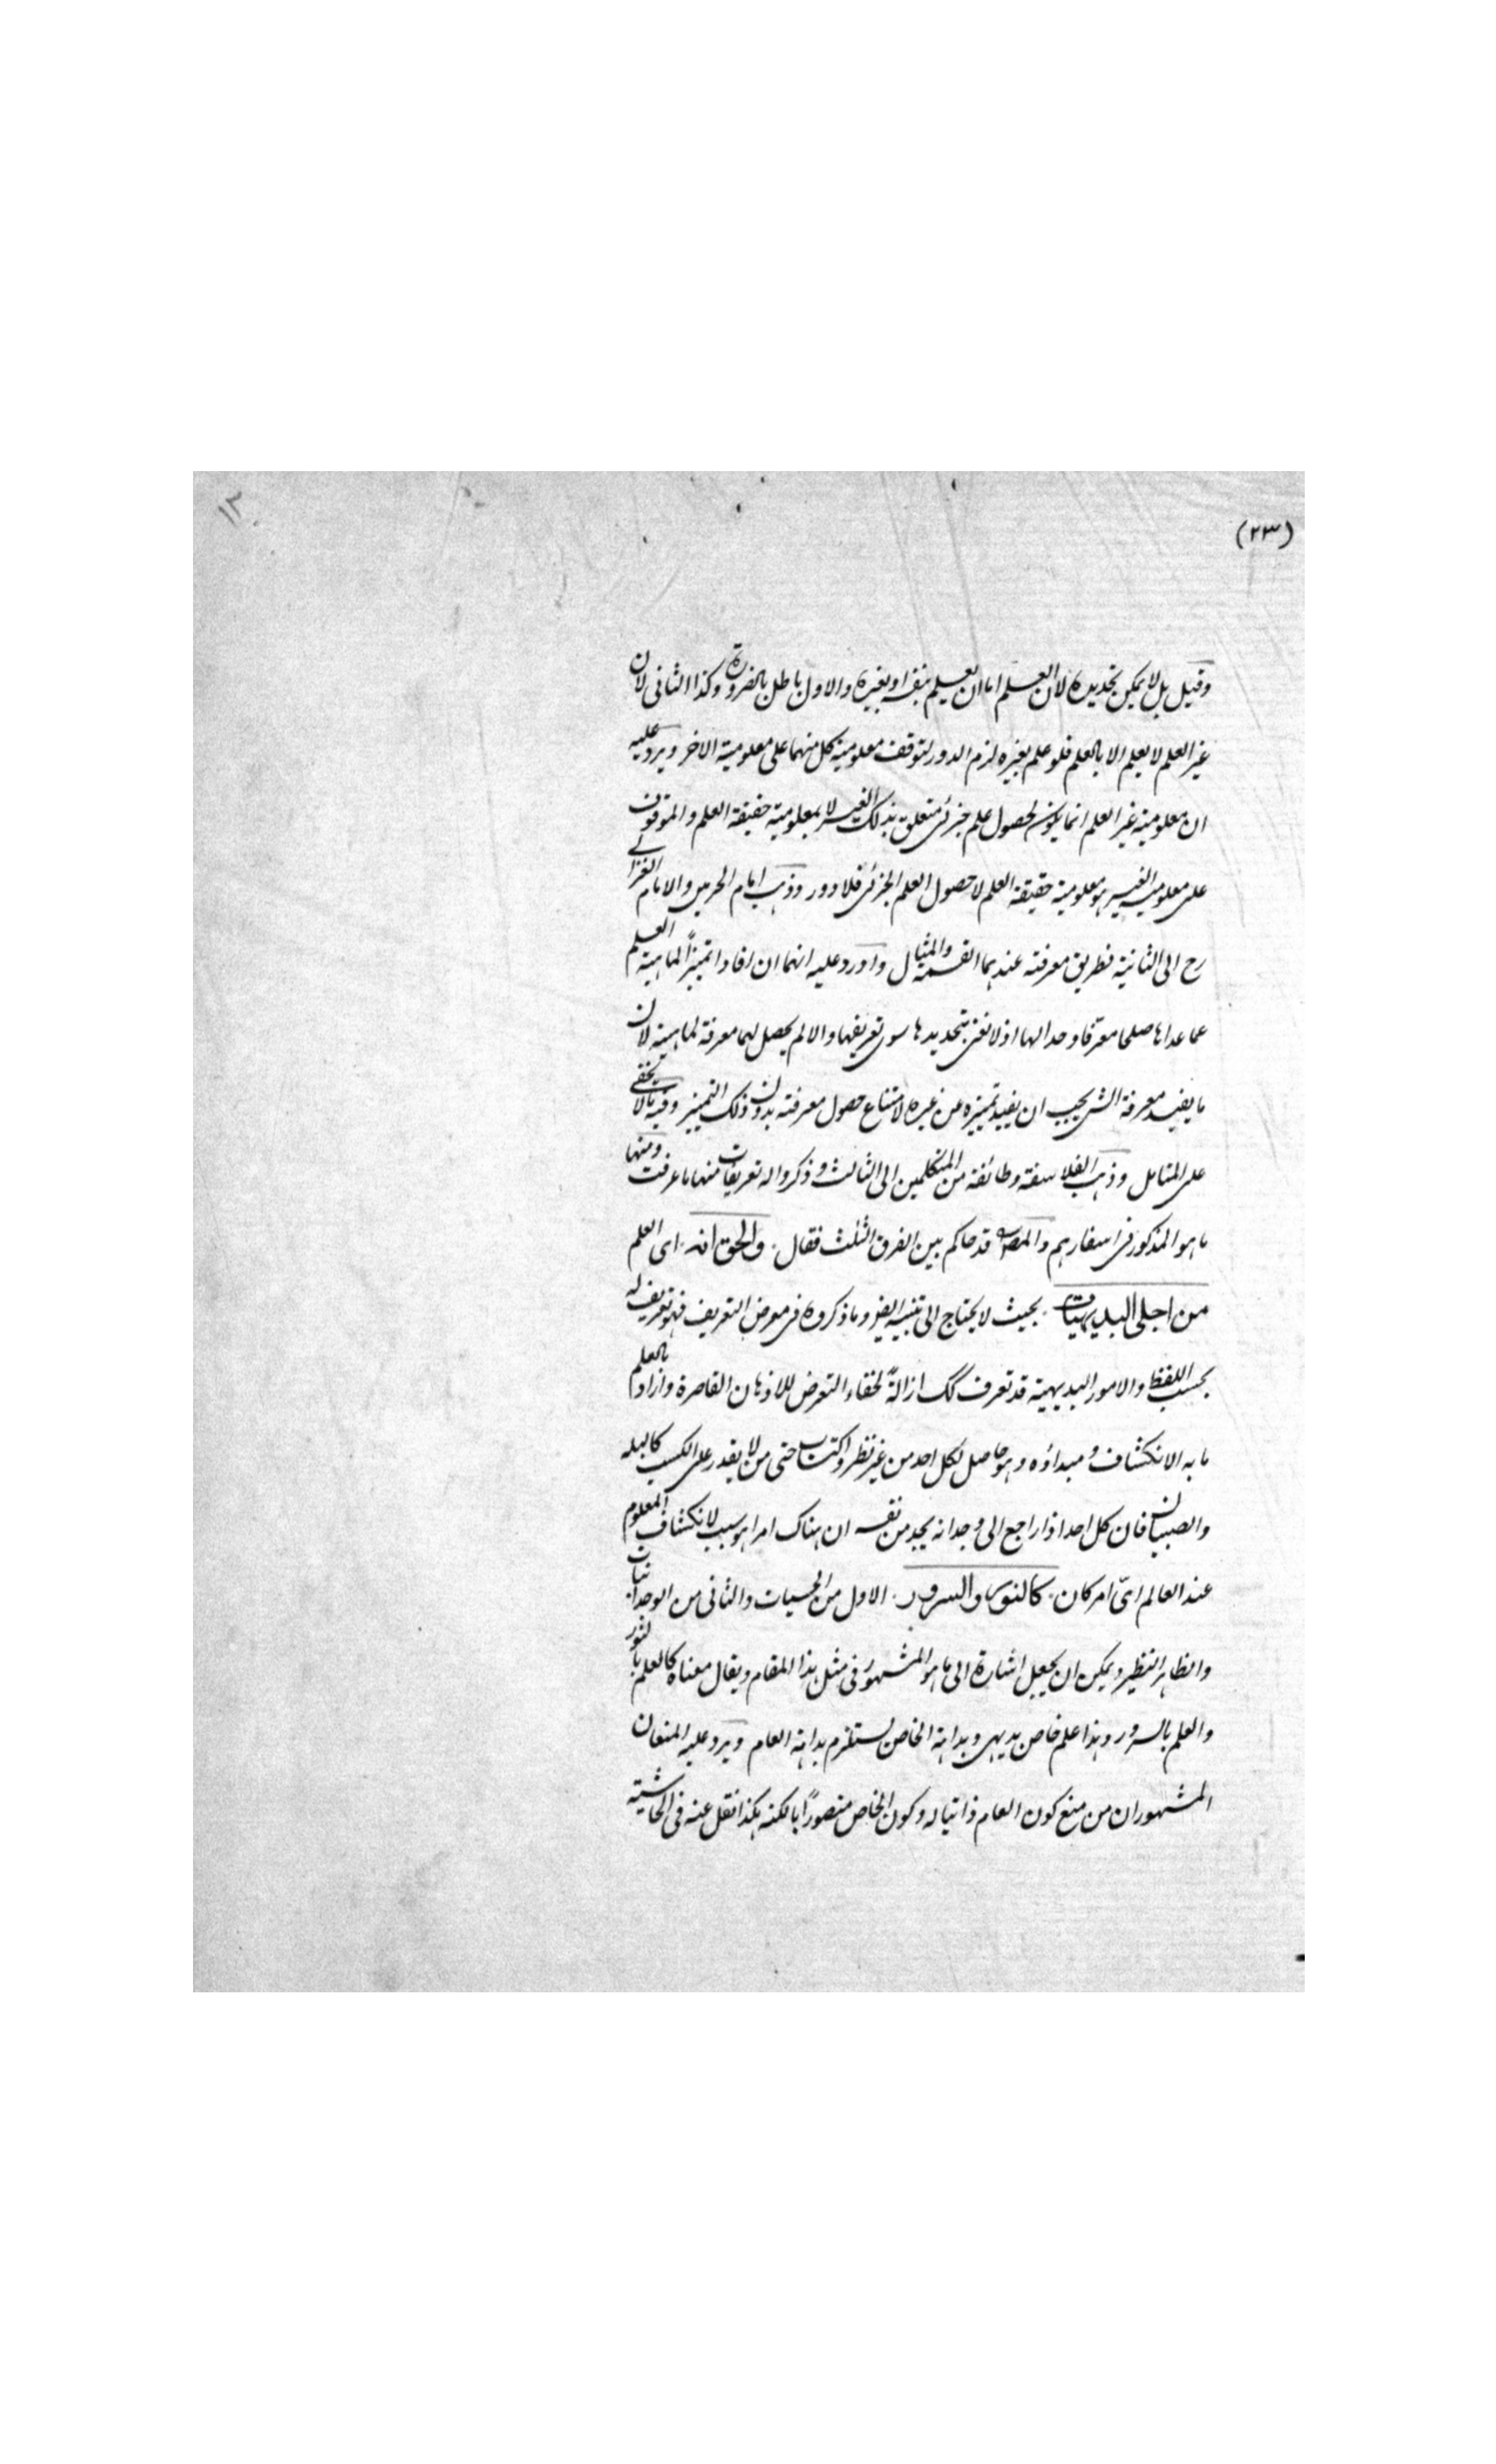 (٢٣)
١٣
وقيل بل لا يمكن تحديده لان العلم اما ان يعلم بنفسه او بغيره والاول باطل بالضرورة وكذا الثانى لان
غير العلم لا يعلم الا بالعلم فلو علم بغيره لزم الدور لتوقف معلومية كل منهما على معلومية الاخر ويرد عليه
ان معلومية غير العلم انما يكون لحصول علم جزئى متعلق بذلك الغير لا بمعلومية حقيقة العلم والموقوف
على معلومية الغير هو معلومية حقيقة العلم لا حصول العلم الجزئى فلا دور وذهب امام الحرمين والامام الغزالى
رح الى الثانية فطريق معرفته عندهما القسمة والمثال واورد عليه انهما ان افادا تميزاً لماهية العلم
عما عداها صلحا معرّفا وحدا لها اذ لا نعنى بتحديدها سوى تعريفها والا لم يحصل بهما معرفة لماهيته لان
ما يفيد معرفة الشئ يجب ان يفيد تميزه عن غيره لامتناع حصول معرفته بدون ذلك التميز وفيه مالا يخفى
على المتامل وذهب الفلاسفة وطائفة من المتكلمين الى الثالث وذكروا له تعريفات منها ما عرفت ومنها
ما هو المذكور فى اسفارهم والمصـ قد حاكم بين الفرق الثلث فقال والحق انه اى العلم
من اجلى البديهيات بحيث لا يحتاج الى تنبيه ايضو وما ذكروه فى معرض التعريف فهو تعريف له
بحسب اللفظ والامور البديهية قد تعرف كك ازالةً لخفاء التعرض للاذهان القاصرة واراد بالعلم
ما به الانكشاف ومبدائه وهو حاصل لكل احد من غير نظر واكتساب حتى من لا يقدر على الكسب كالبله
والصبيان فان كل احد اذا راجع الى وجدانه يجد من نفسه ان هناك امرا هو سبب لانكشاف المعلوم
عند العالم اىّ امر كان كالنور والسرور الاول من الحسيات والثانى من الوجدانيات
والظاهر التنظير ويمكن ان يجعل اشارة الى ما هو المشهور فى مثل هذا المقام ويقال معناه كالعلم بالنور
والعلم بالسرور وهذا علم خاص بديهى وبداهة الخاص يستلزم بداهة العام ويرد عليه المنعان
المشهوران من منع كون العام ذاتيا له وكون الخاص متصوراً بالكنه هكذا نقل عنه فى الحاشية